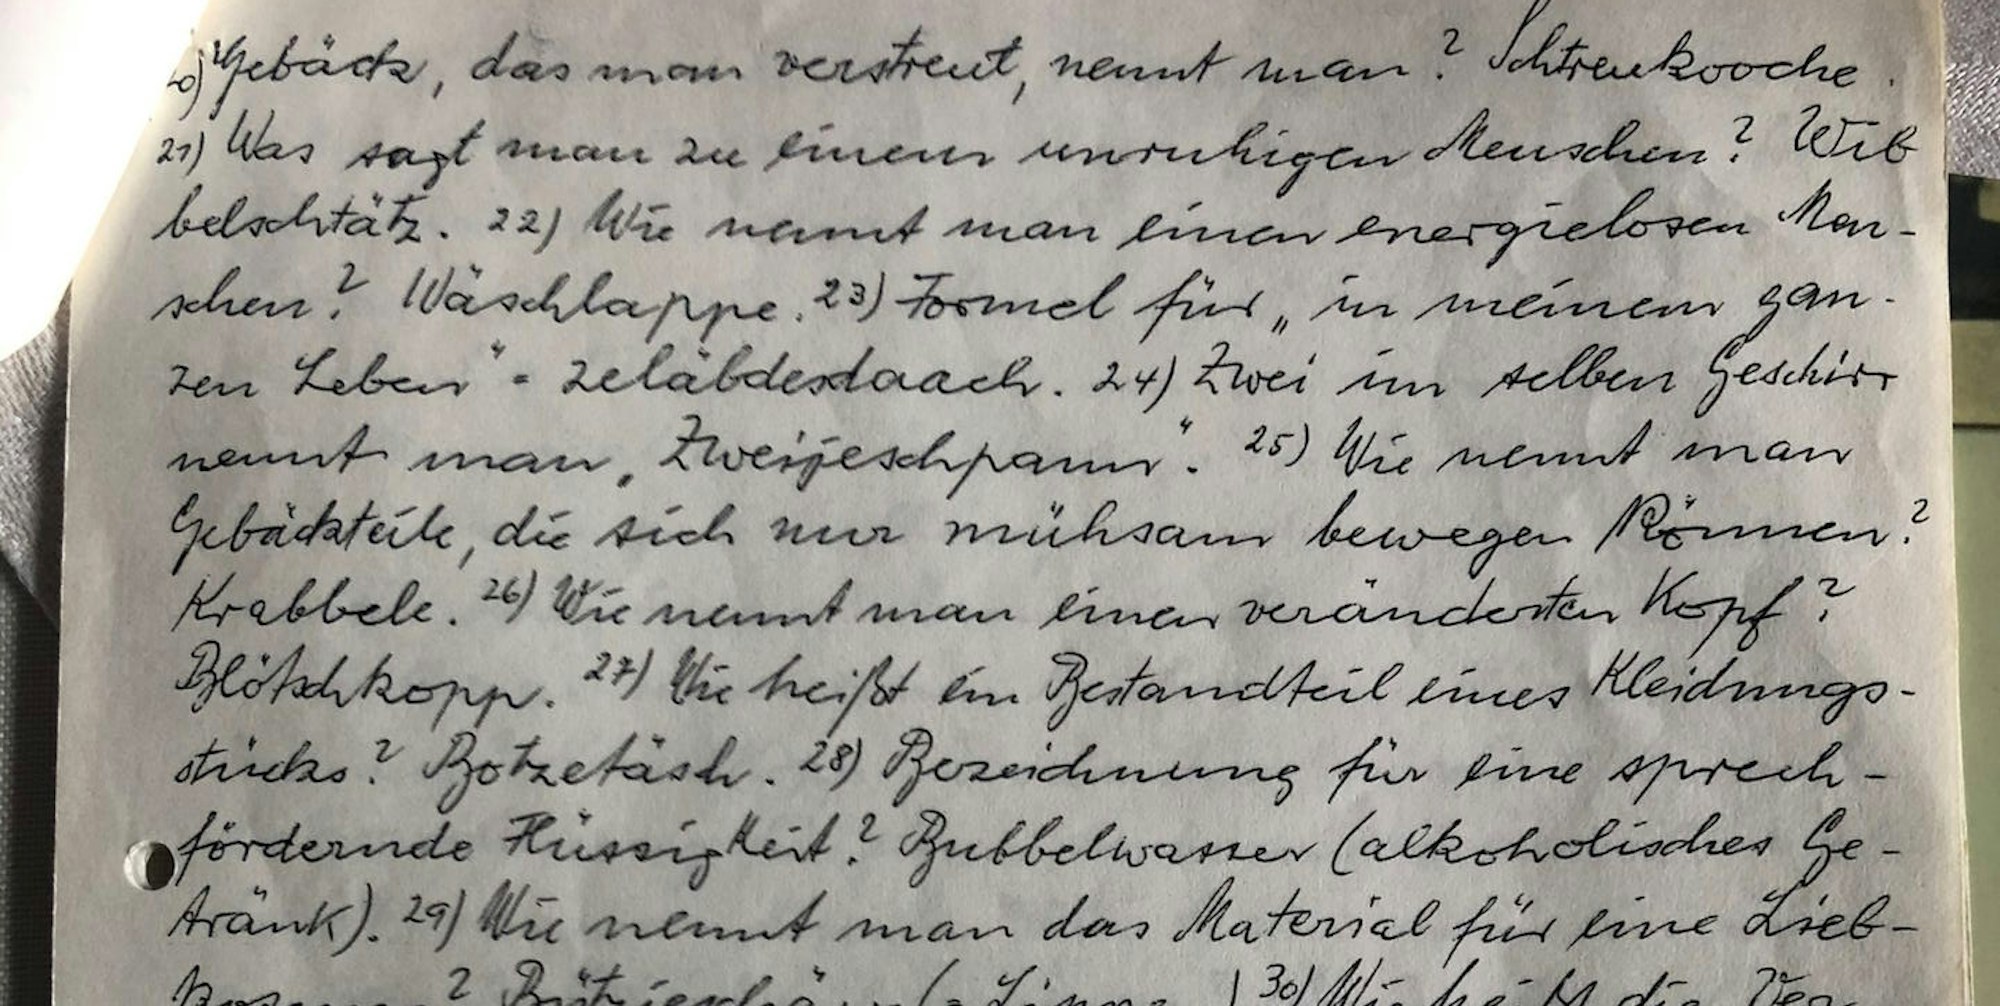 20) Gebäck, das man verstreut, nennt man? Schtreukooche.
21) Was sagt man zu einem unruhigen Menschen? Wib
belschtätz. 22) Wie nennt man einen energielosen Men-
schen? Wäschlappe. 23) Formel für „in meinem gan-
zen Leben" = zeläbdesdaach. 24) Zwei im selben Geschirr
nennt man „Zweijeschpann". 25) Wie nennt man
Gebäckteile, die sich nur mühsam bewegen können?
Krabbele. 26) Wie nennt man einen veränderten Kopf?
Blötschkopp. 27) Wie heißt ein Bestandteil eines Kleidungs-
stücks? Botzetäsh. 28) Bezeichnung für eine sprech-
fördernde Flüssigkeit? Bubbelwasser (alkoholisches Ge-
tränk). 29) Wie nennt man das Material für eine Lieb-
? 30) Wie heißt die Ver-